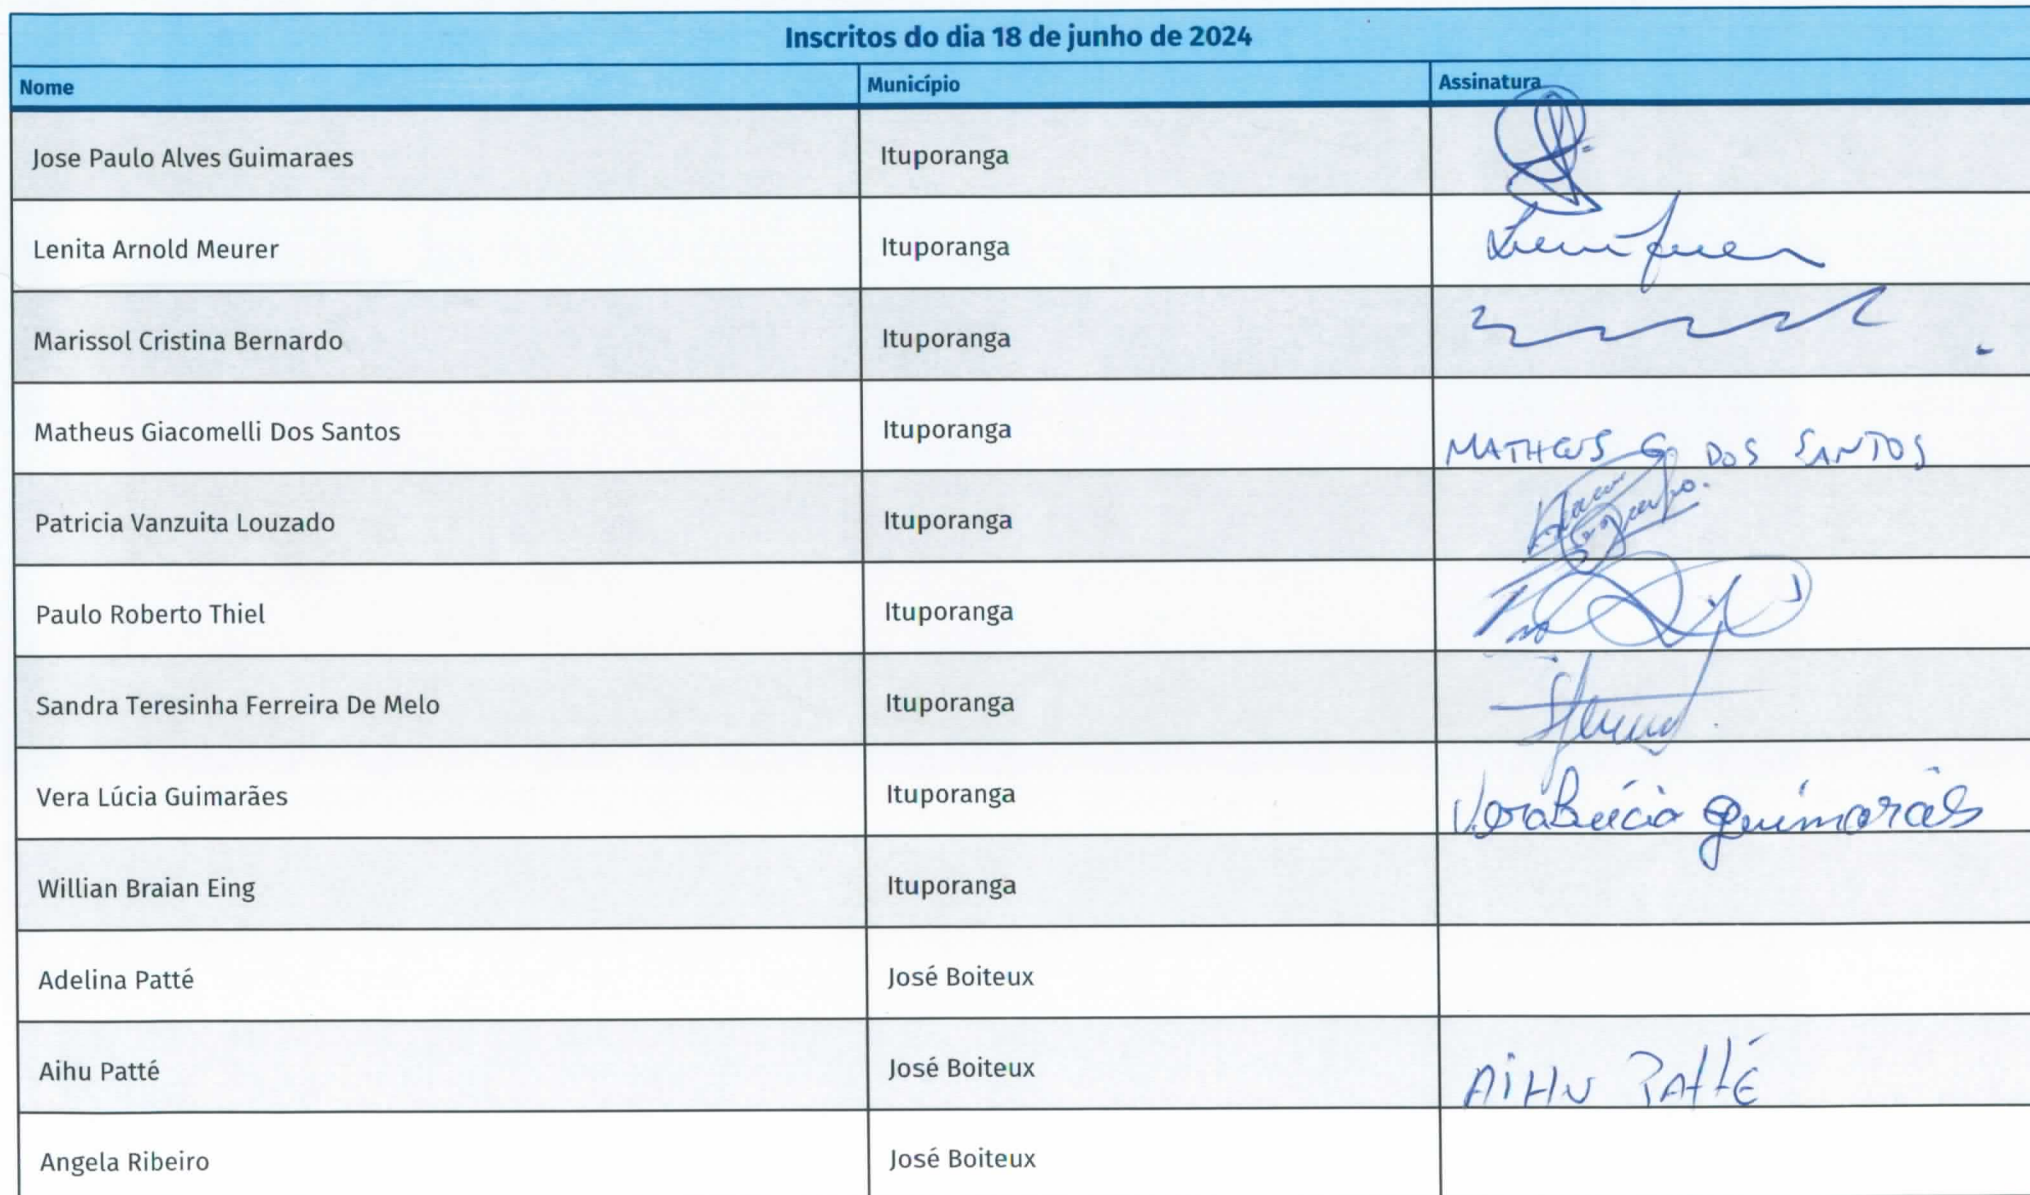 Inscritos do dia 18 de junho de 2024
Nome Município Assinatura
Jose Paulo Alves Guimaraes Ituporanga
Lenita Arnold Meurer Ituporanga
Marissol Cristina Bernardo Ituporanga
Matheus Giacomelli Dos Santos Ituporanga MATHEUS G. DOS SANTOS
Patricia Vanzuita Louzado Ituporanga
Paulo Roberto Thiel Ituporanga
Sandra Teresinha Ferreira De Melo Ituporanga
Vera Lúcia Guimarães Ituporanga Vera Lúcia Guimarães
Willian Braian Eing Ituporanga
Adelina Patté José Boiteux
Aihu Patté José Boiteux AiHU PAttÉ
Angela Ribeiro José Boiteux